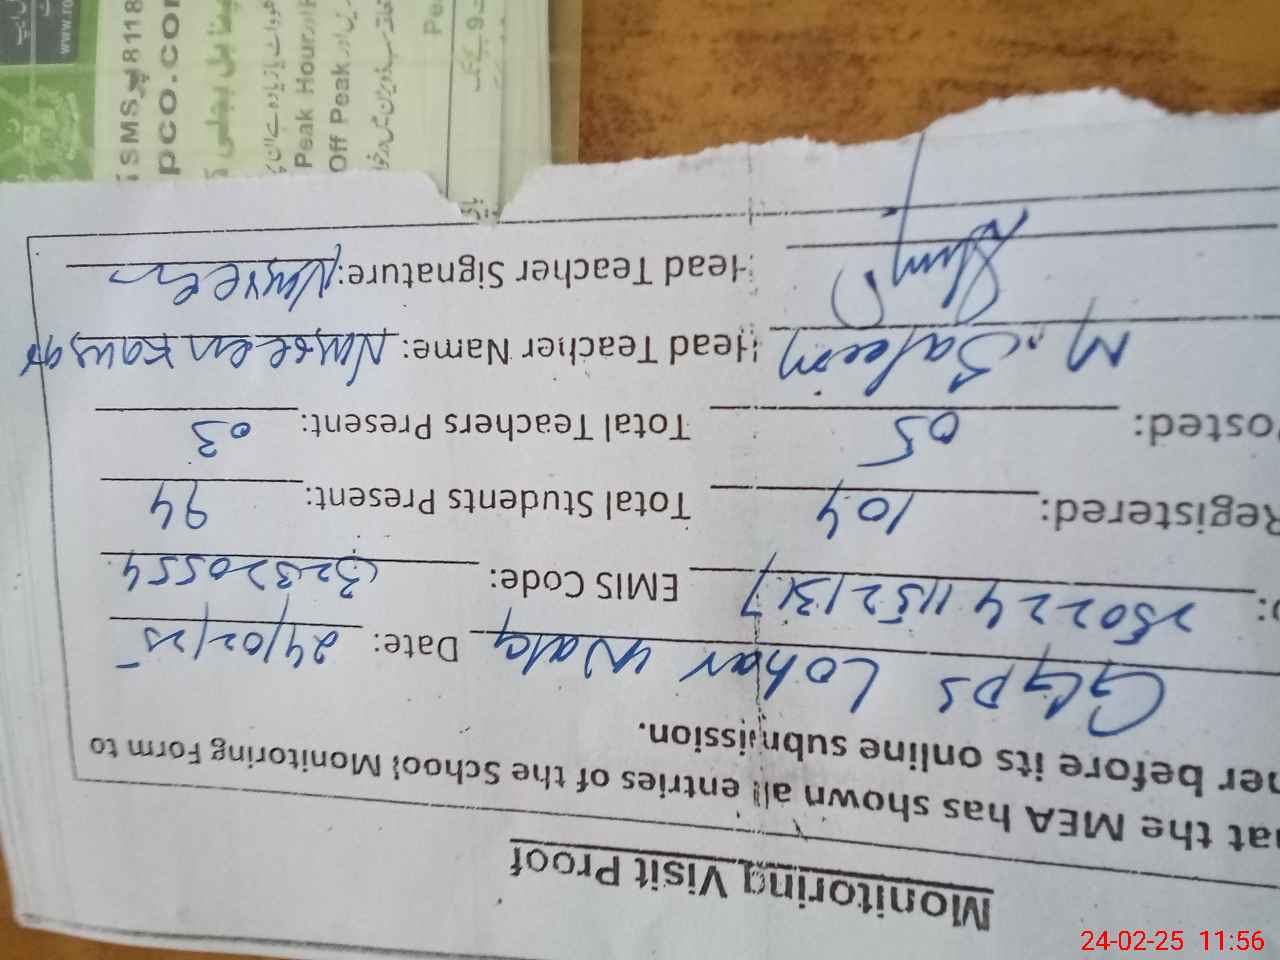 Monitoring Visit Proof
at the MEA has shown all entries of the School Monitoring Form to
er before its online submission.
GGPS Lohar Wala Date: 24/02/25
EMIS Code: 32320554
Registered: 104 Total Students Present: 94
osted: 05 Total Teachers Present: 03
M. Saleem Head Teacher Name: Nasreen Kausar
Head Teacher Signature: Nasreen
SMS 8118
pco.com
Peak Hour
Off Peak
24-02-25 11:56